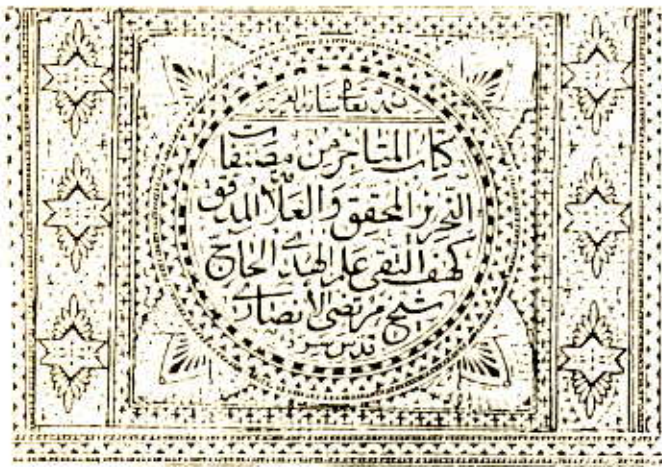 كتاب المتاجر من مصنفات
النحرير المحقق والعلّامة المدقق
كهف التقى علم الهدى الحاج
شيخ مرتضى الانصاري
قدس سره